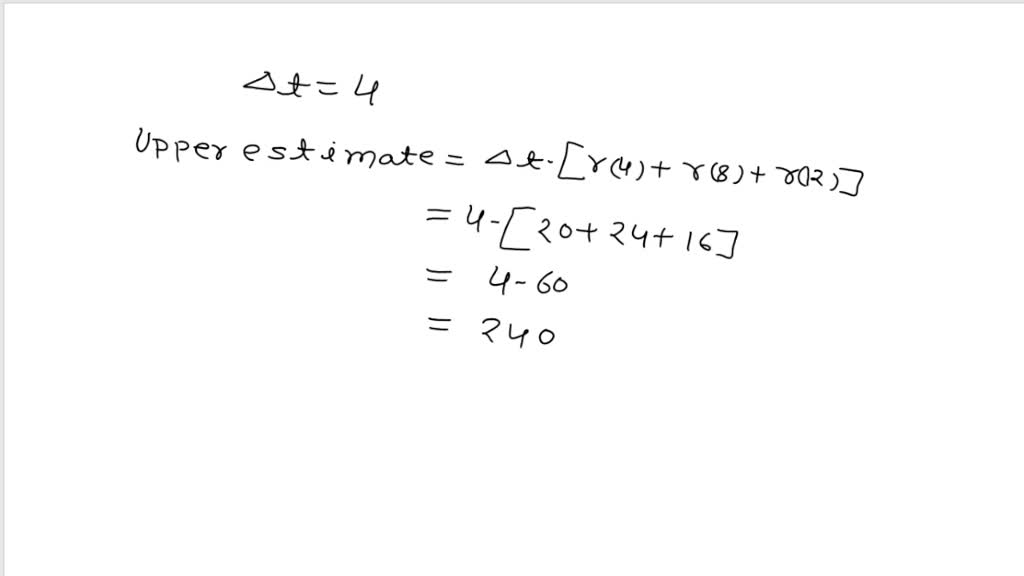 Δt = 4
Upper estimate = Δt·[r(4) + r(8) + r(12)]
= 4-[20+ 24+ 16]
= 4-60
= 240